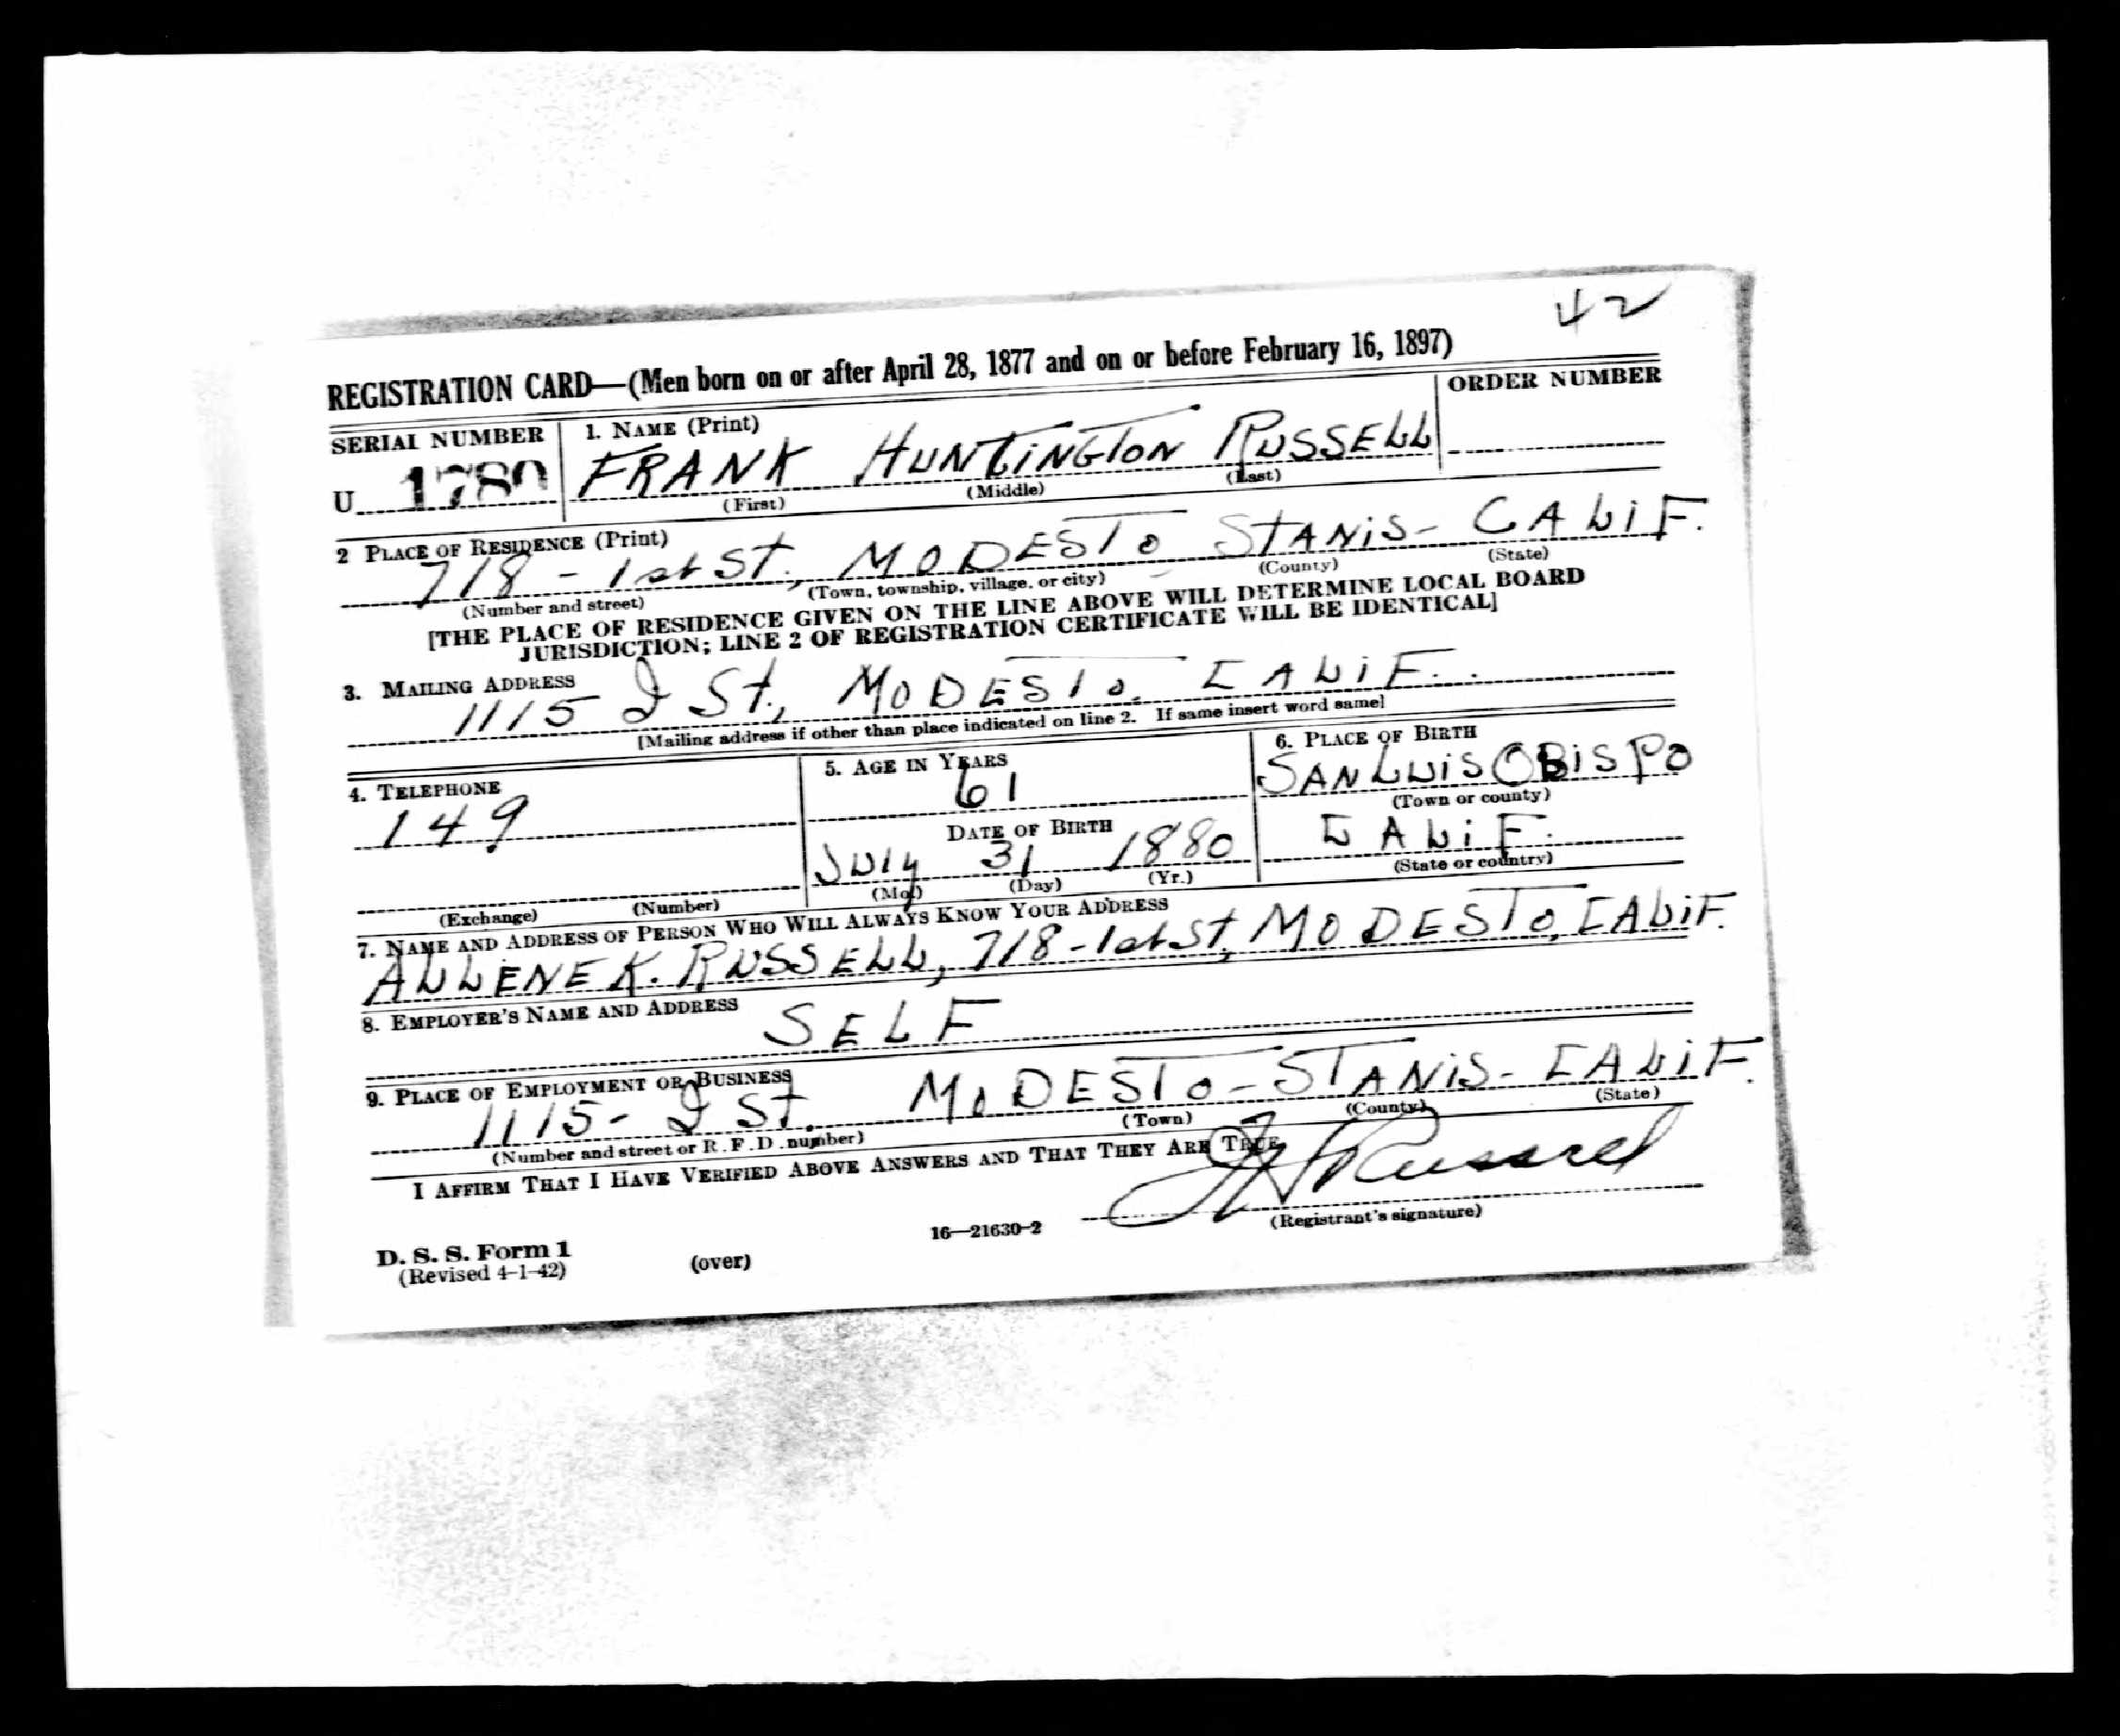 42
REGISTRATION CARD—(Men born on or after April 28, 1877 and on or before February 16, 1897)
SERIAL NUMBER 1. NAME (Print) ORDER NUMBER
U 1780 FRANK HUNTINGTON RUSSELL
(First) (Middle) (Last)
2 PLACE OF RESIDENCE (Print)
718 - 1st St., MODESTO STANIS- CALIF.
(Number and street) (Town, township, village, or city) (County) (State)
[THE PLACE OF RESIDENCE GIVEN ON THE LINE ABOVE WILL DETERMINE LOCAL BOARD
JURISDICTION; LINE 2 OF REGISTRATION CERTIFICATE WILL BE IDENTICAL]
3. MAILING ADDRESS
1115 I St., MODESTO, CALIF.
[Mailing address if other than place indicated on line 2. If same insert word same]
4. TELEPHONE 5. AGE IN YEARS 6. PLACE OF BIRTH
149 61 SAN LUIS OBISPO
(Town or county)
DATE OF BIRTH CALIF.
JULY 31 1880 (State or country)
(Exchange) (Number) (Mo.) (Day) (Yr.)
7. NAME AND ADDRESS OF PERSON WHO WILL ALWAYS KNOW YOUR ADDRESS
ALLENE K. RUSSELL, 718 - 1st St, MODESTO, CALIF.
8. EMPLOYER'S NAME AND ADDRESS
SELF
9. PLACE OF EMPLOYMENT OR BUSINESS
1115 - I St. MODESTO - STANIS - CALIF.
(Number and street or R. F. D. number) (Town) (County) (State)
I AFFIRM THAT I HAVE VERIFIED ABOVE ANSWERS AND THAT THEY ARE TRUE.
F H Russell
D. S. S. Form 1 16—21630-2 (Registrant's signature)
(Revised 4-1-42) (over)